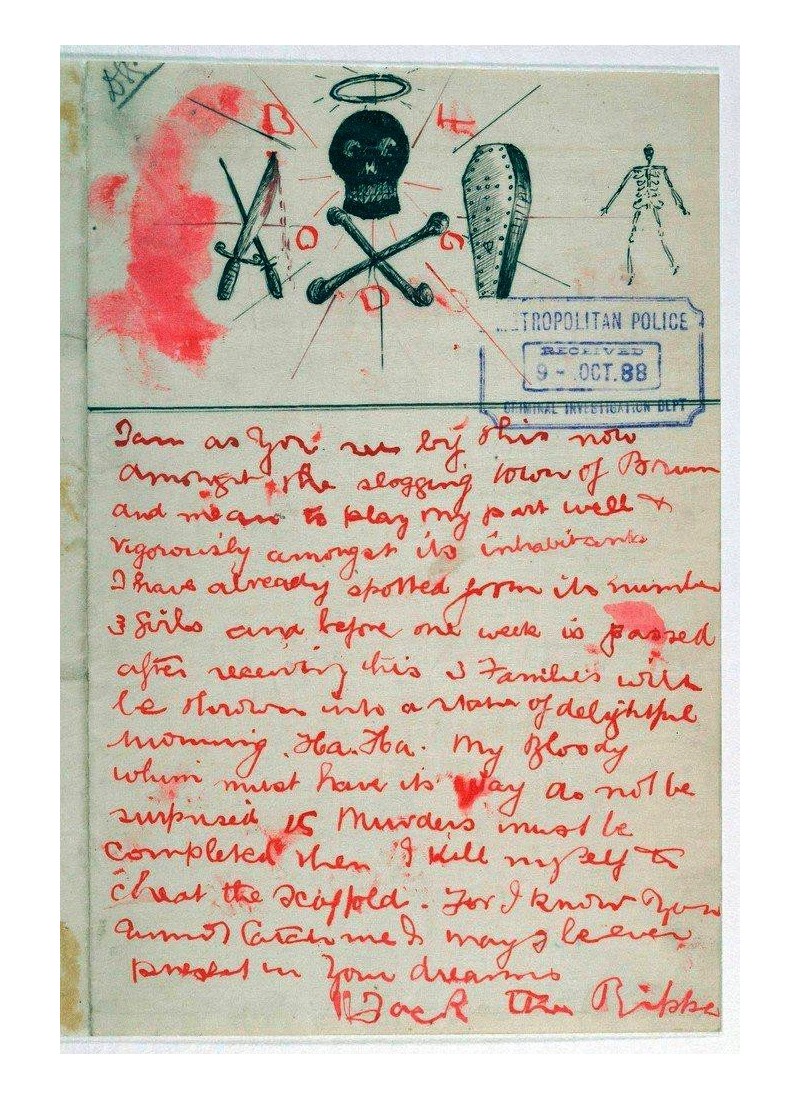 TROPOLITAN POLICE
RECEIVED
9 - OCT. 88
CRIMINAL INVESTIGATION DEPT
I am as You see by this now
amongst the slogging town of Brum
and mean to play my part well &
vigorously amongst its inhabitants
I have already spotted from its number
3 Girls and before one week is passed
after receiving this 3 Families will
be thrown into a state of delightful
mourning. Ha. Ha. My Bloody
whim must have its Way do not be
surprised 15 Murders must be
completed then I kill myself to
cheat the scaffold. For I know You
cannot Catch me & may I be ever
present in Your dreams
Jack the Rippe